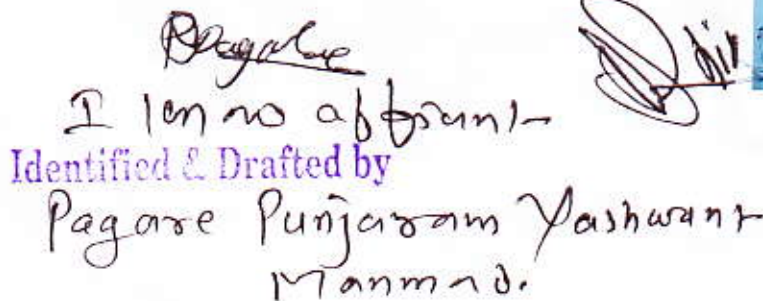 BPagare
I know affiant
Identified & Drafted by
Pagare Punjaram Yashwant
Manmad.